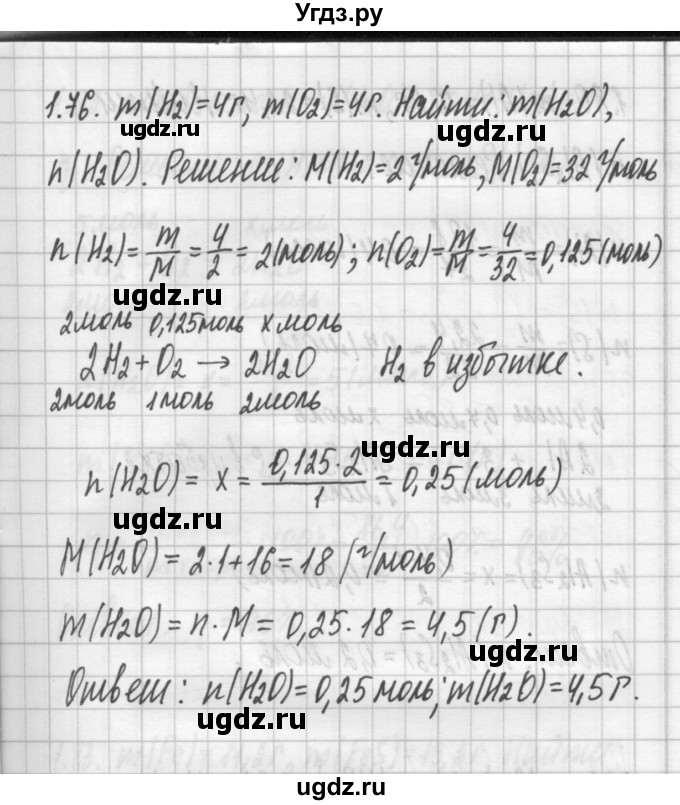 Угдз.ру
1.76. m(H₂)=4г, m(O₂)=4г. Найти: m(H₂O),
n(H₂O). Решение: M(H₂)=2 г/моль, M(O₂)=32 г/моль
n(H₂)= m/M = 4/2 = 2(моль); n(O₂)= m/M = 4/32 = 0,125(моль)
ugdz.ru
2моль 0,125моль x моль
2H₂+O₂ → 2H₂O H₂ в избытке.
2моль 1моль 2моль
ugdz.ru
n(H₂O) = x = 0,125·2/1 = 0,25(моль)
ugdz.ru
M(H₂O) = 2·1+16 = 18 (г/моль)
m(H₂O) = n·M = 0,25·18 = 4,5(г).
ugdz.ru
Ответ: n(H₂O)=0,25моль; m(H₂O)=4,5г.
ugdz.ru
ugdz.ru